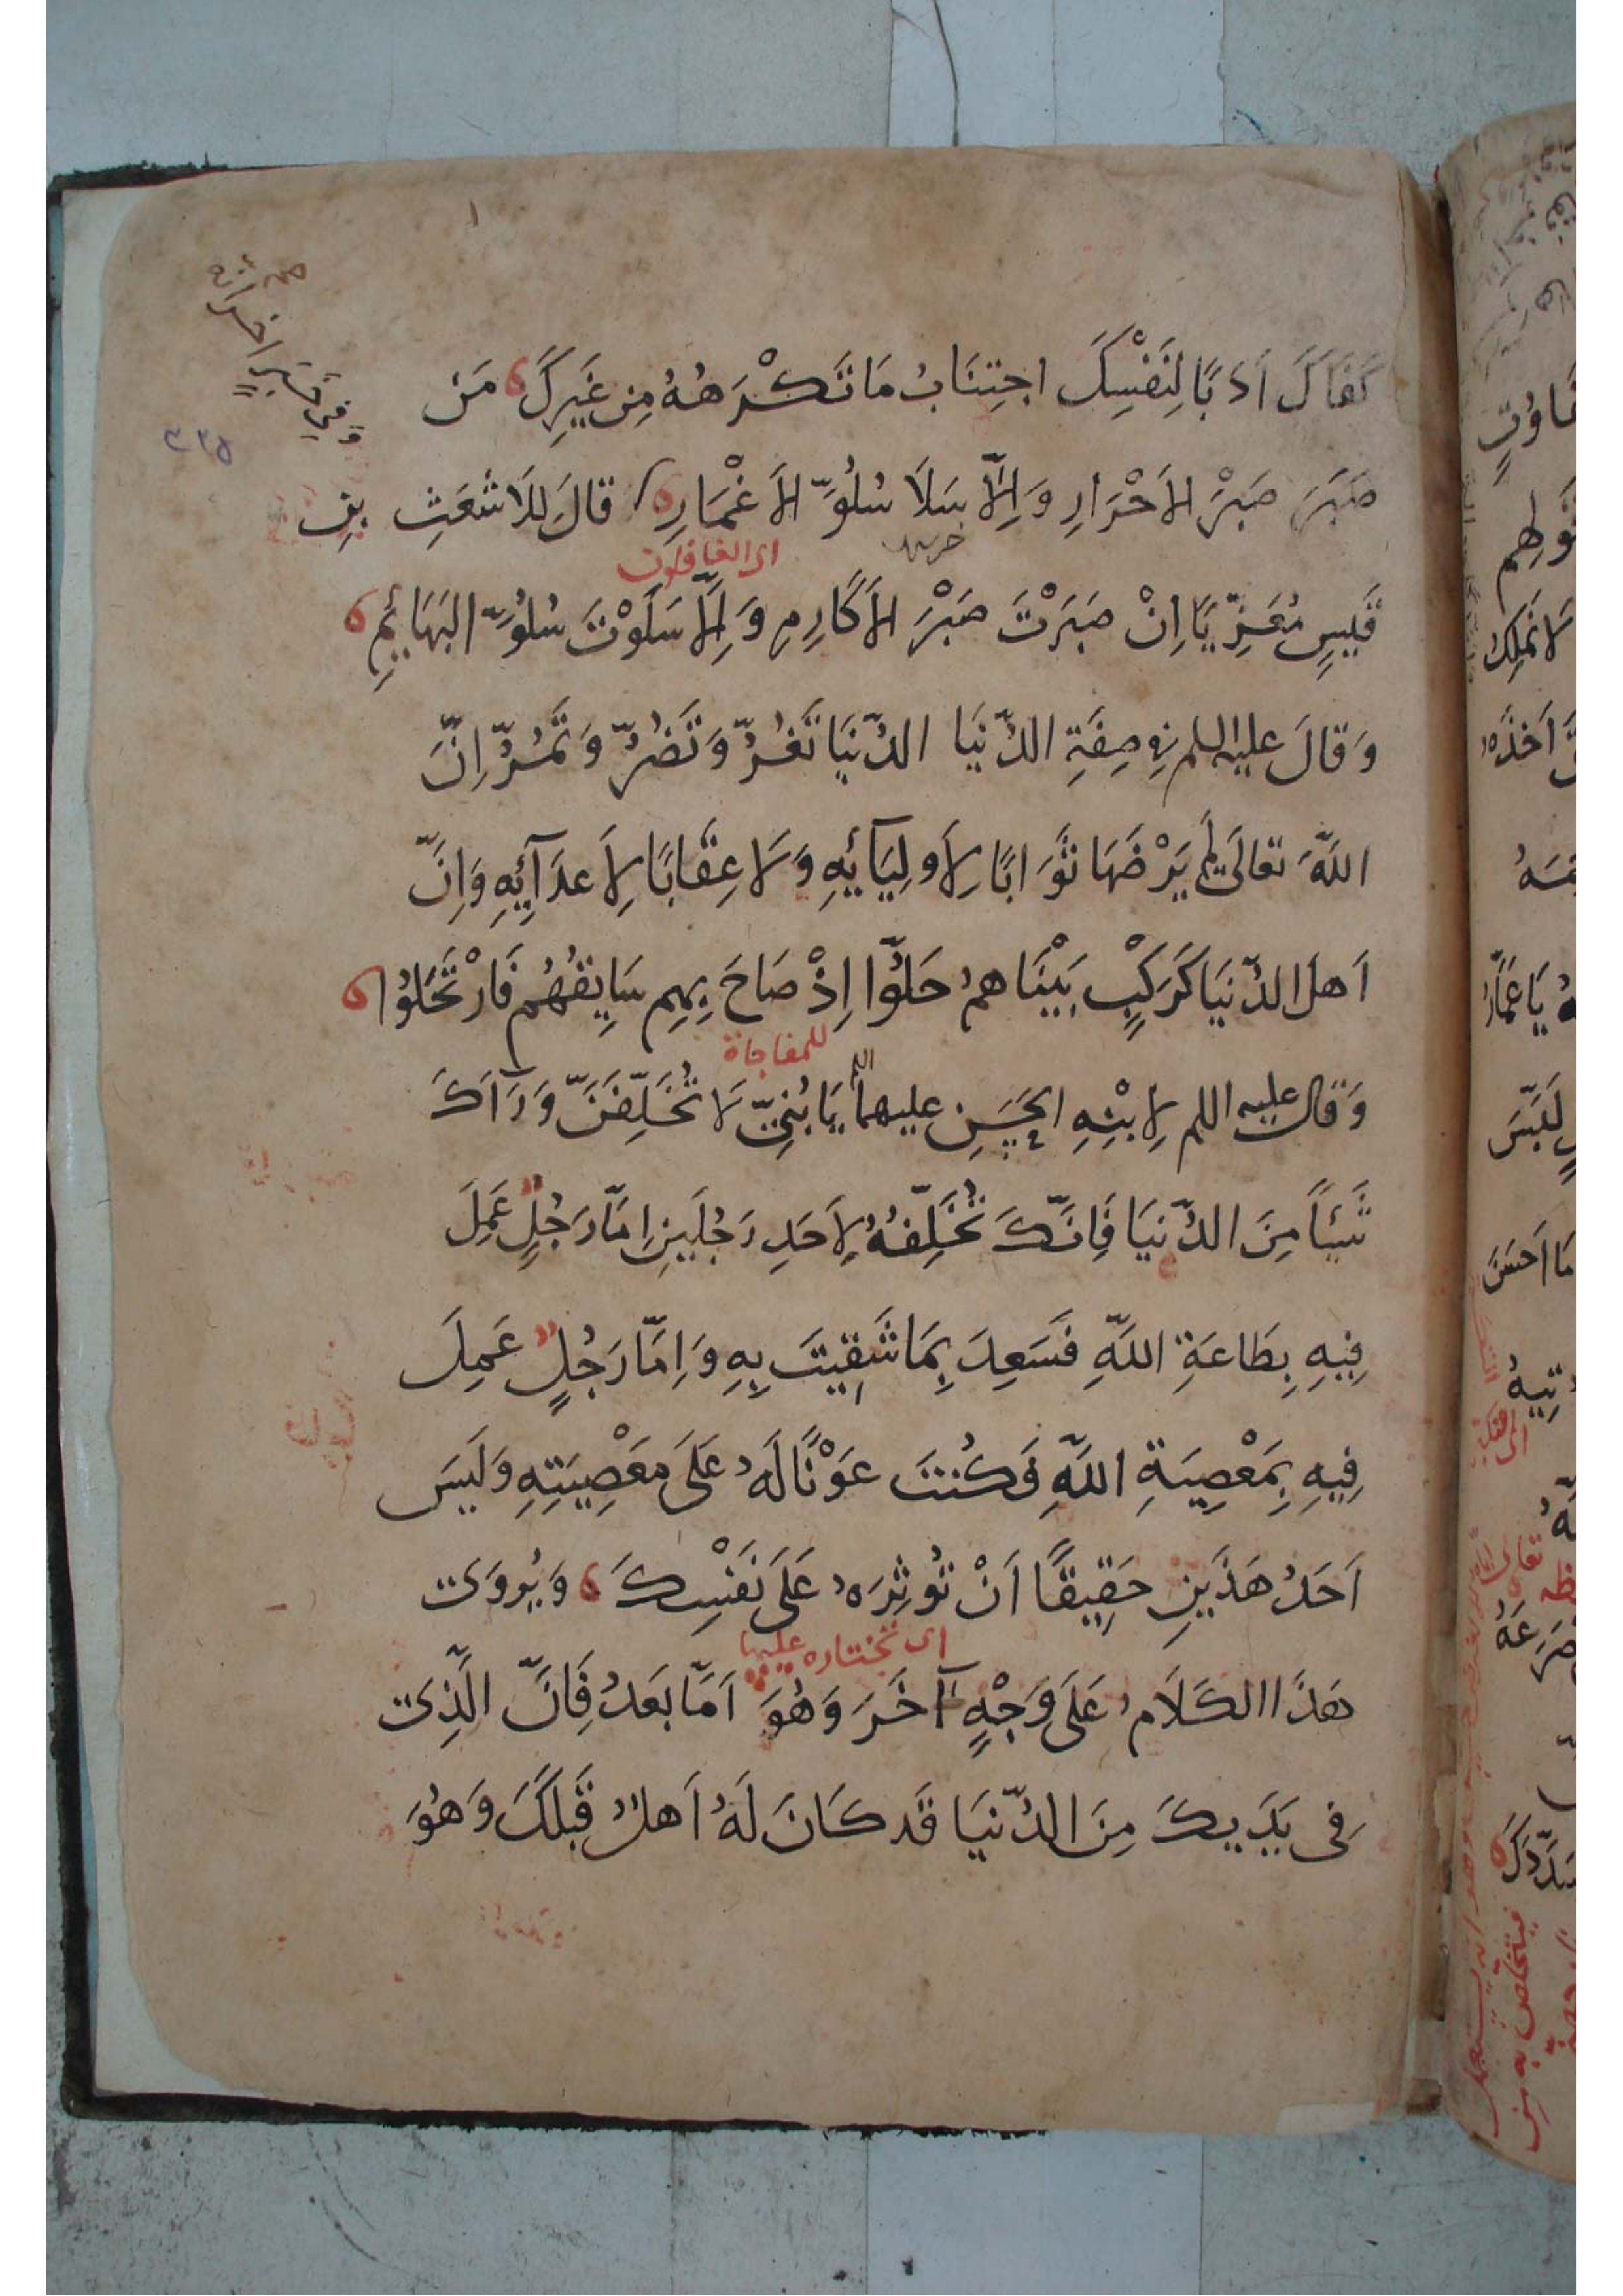 كَفَاكَ اَدَبًا لِنَفْسِكَ اجتِنَابُ مَا تَكْرَهُهُ مِن غَيرِكَ مَن
صَبَرَ صَبْرَ الاَحْرَارِ وَاِلَّا سَلَا سُلُوَّ الاَغْمَارِ قَالَ لِلاَشعَثِ بنِ
اى الغافلون
قَيسٍ مُعَزِّيًا اِنْ صَبَرْتَ صَبْرَ الاَكَارِمِ وَاِلَّا سَلَوْتَ سُلُوَّ البَهَائِمِ
وَقَالَ عليه السلم في صِفَةِ الدُّنيَا الدُّنيَا تَغُرُّ وَتَضُرُّ وَتَمُرُّ اِنَّ
اللّهَ تعالَى لَم يَرْضَهَا ثَوَابًا لِاَولِيَائِهِ وَلَا عِقَابًا لِاَعدَآئِهِ وَاِنَّ
اَهلَ الدُّنيَا كَرَكْبٍ بَيْنَاهُم حَلُّوا اِذْ صَاحَ بِهِم سَايِقُهُم فَارْتَحَلُوْا
للمفاجاة
وَقَالَ عليه السلم لِابْنِهِ الحَسَنِ عليهما السلم يَا بُنَىَّ لَا تُخَلِّفَنَّ وَرَآءَكَ
شَيئًا مِنَ الدُّنيَا فَاِنَّكَ تُخَلِّفُهُ لِاَحَدِ رَجُلَينِ اِمَّا رَجُلٌ عَمِلَ
فِيهِ بِطَاعَةِ اللّهِ فَسَعِدَ بِمَا شَقِيتَ بِهِ وَاِمَّا رَجُلٌ عَمِلَ
فِيهِ بِمَعْصِيَةِ اللّهِ فَكُنتَ عَوْنًا لَهُ عَلَى مَعْصِيَتِهِ وَلَيسَ
اَحَدُ هَذَينِ حَقِيقًا اَنْ تُوثِرَهُ عَلَى نَفْسِكَ وَيُروَى
اى تختاره عليها
هَذَا الكَلَامُ عَلَى وَجْهٍ آخَرَ وَهُوَ اَمَّا بَعدُ فَاِنَّ الَّذِى
فِى يَدَيكَ مِنَ الدُّنيَا قَد كَانَ لَهُ اَهلٌ قَبلَكَ وَهُوَ